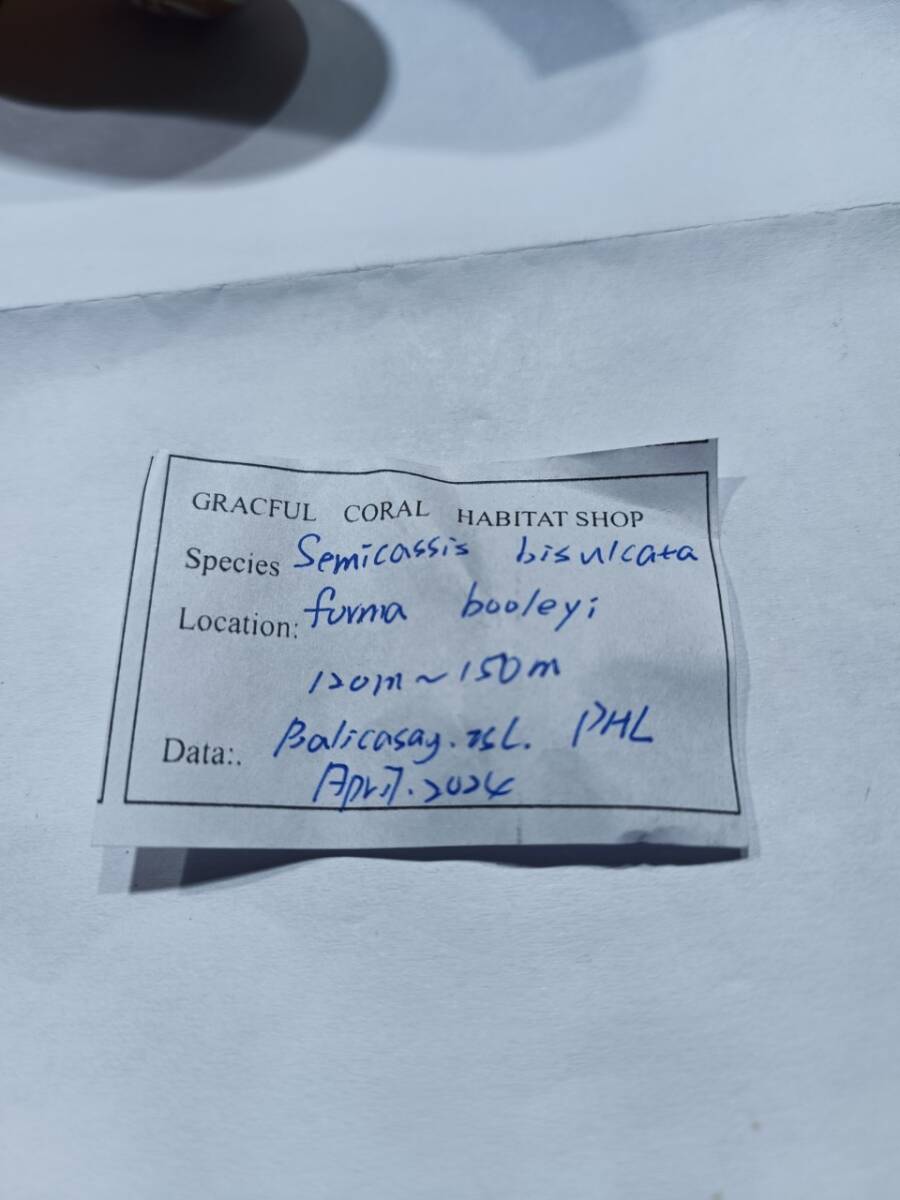 GRACFUL CORAL HABITAT SHOP
Species Semicassis bisulcata
Location: forma booleyi
120m~150m
Data:. Balicasag.ISL. PHL
April.2024